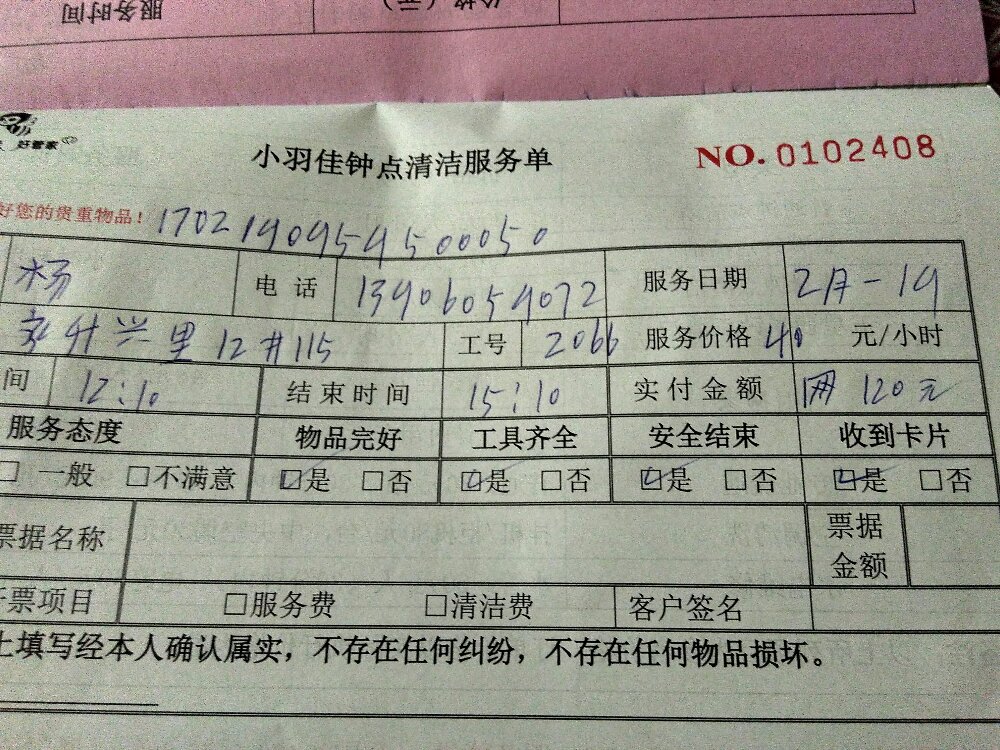 服务时间 价格（元）
好管家
小羽佳钟点清洁服务单 NO. 0102408
好您的贵重物品！ 17021909594500050
杨 电话 13906059072 服务日期 2月-19
升兴里12#115 工号 2066 服务价格 40 元/小时
间 12:10 结束时间 15:10 实付金额 网 120元
服务态度 物品完好 工具齐全 安全结束 收到卡片
□ 一般 □不满意 ☑是 □否 ☑是 □否 ☑是 □否 ☑是 □否
票据名称 票据金额
票项目 □服务费 □清洁费 客户签名
上填写经本人确认属实，不存在任何纠纷，不存在任何物品损坏。